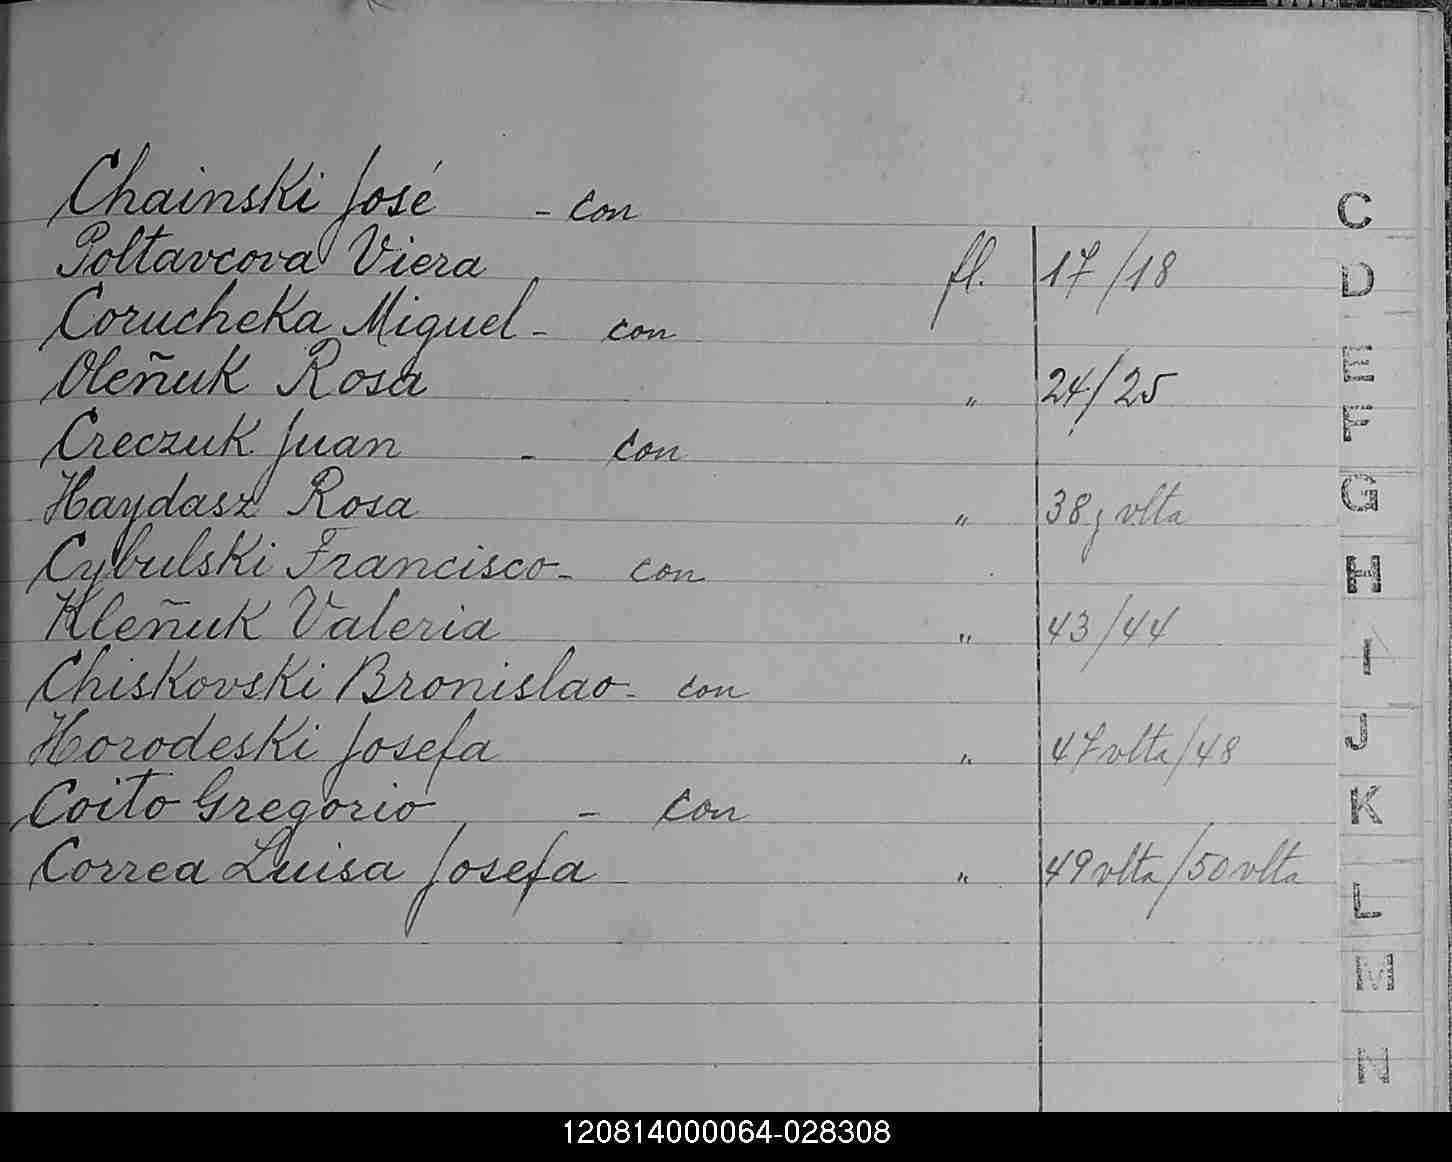 Chainski José - con
Poltavcova Viera fl. 17/18
Corucheka Miguel - con
Oleñuk Rosa " 24/25
Creczuk Juan - con
Haydasz Rosa " 38 y vlta
Cybulski Francisco - con
Kleñuk Valeria " 43/44
Chiskovski Bronislao - con
Horodeski Josefa " 47 vlta/48
Coito Gregorio - con
Correa Luisa Josefa " 49 vlta/50 vlta
C
D
E
F
G
H
I
J
K
L
M
N
120814000064-028308